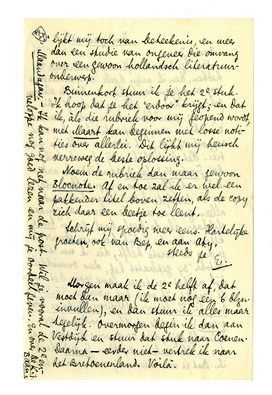 lijkt mij toch van beteekenis, en meer
dan een studie van ongeveer die omvang
over een gewoon hollandsch literatuur-
onderwerp.
Binnenkort stuur ik je het 2e stuk.
Ik hoop dat je het "erdoor" krijgt, en dat
ik, als die rubriek voor mij geopend wordt,
met Maart kan beginnen met losse noti-
ties over allerlei. Dit lijkt mij heusch
verreweg de beste oplossing.
Noem de rubriek dan maar gewoon
Blocnote. Af en toe zal ik er wel een
pakkender titel boven zetten, als de copy
zich daar een beetje toe leent.
Schrijf mij spoedig weer eens. Hartelijke
groeten, ook van Bep, en aan Atty.
steeds je
E.
Morgen maak ik de 2e helft af, dat
moet dan maar (ik moet nog een 6 blzn.
invullen), en dan stuur ik alles maar
tegelijk. Overmorgen begin ik dan aan
Vestdijk en stuur dat stuk naar Coenen.
Daarna — eerder niet — vertrek ik naar
het Bretoenenland. Voilà.